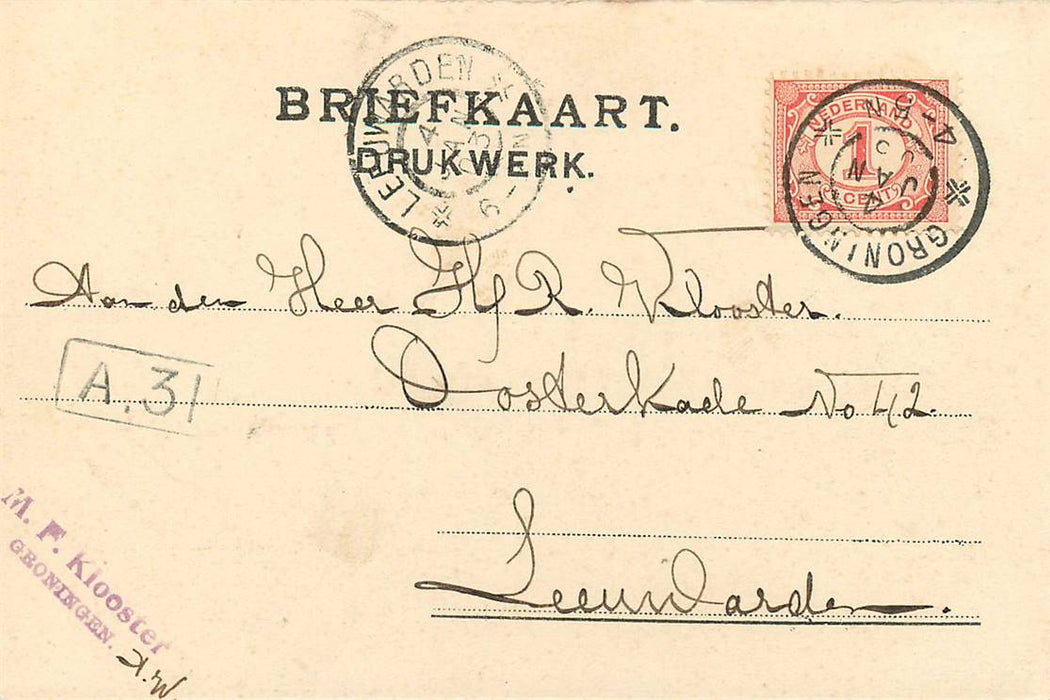 BRIEFKAART.
DRUKWERK.
LEEUWARDEN
6-
NEDERLAND
1
CENT
GRONINGEN
4-5N
Aan den Heer R. Klooster.
Oosterkade No 42.
Leeuwarden.
A.31
M. F. Klooster
GRONINGEN.